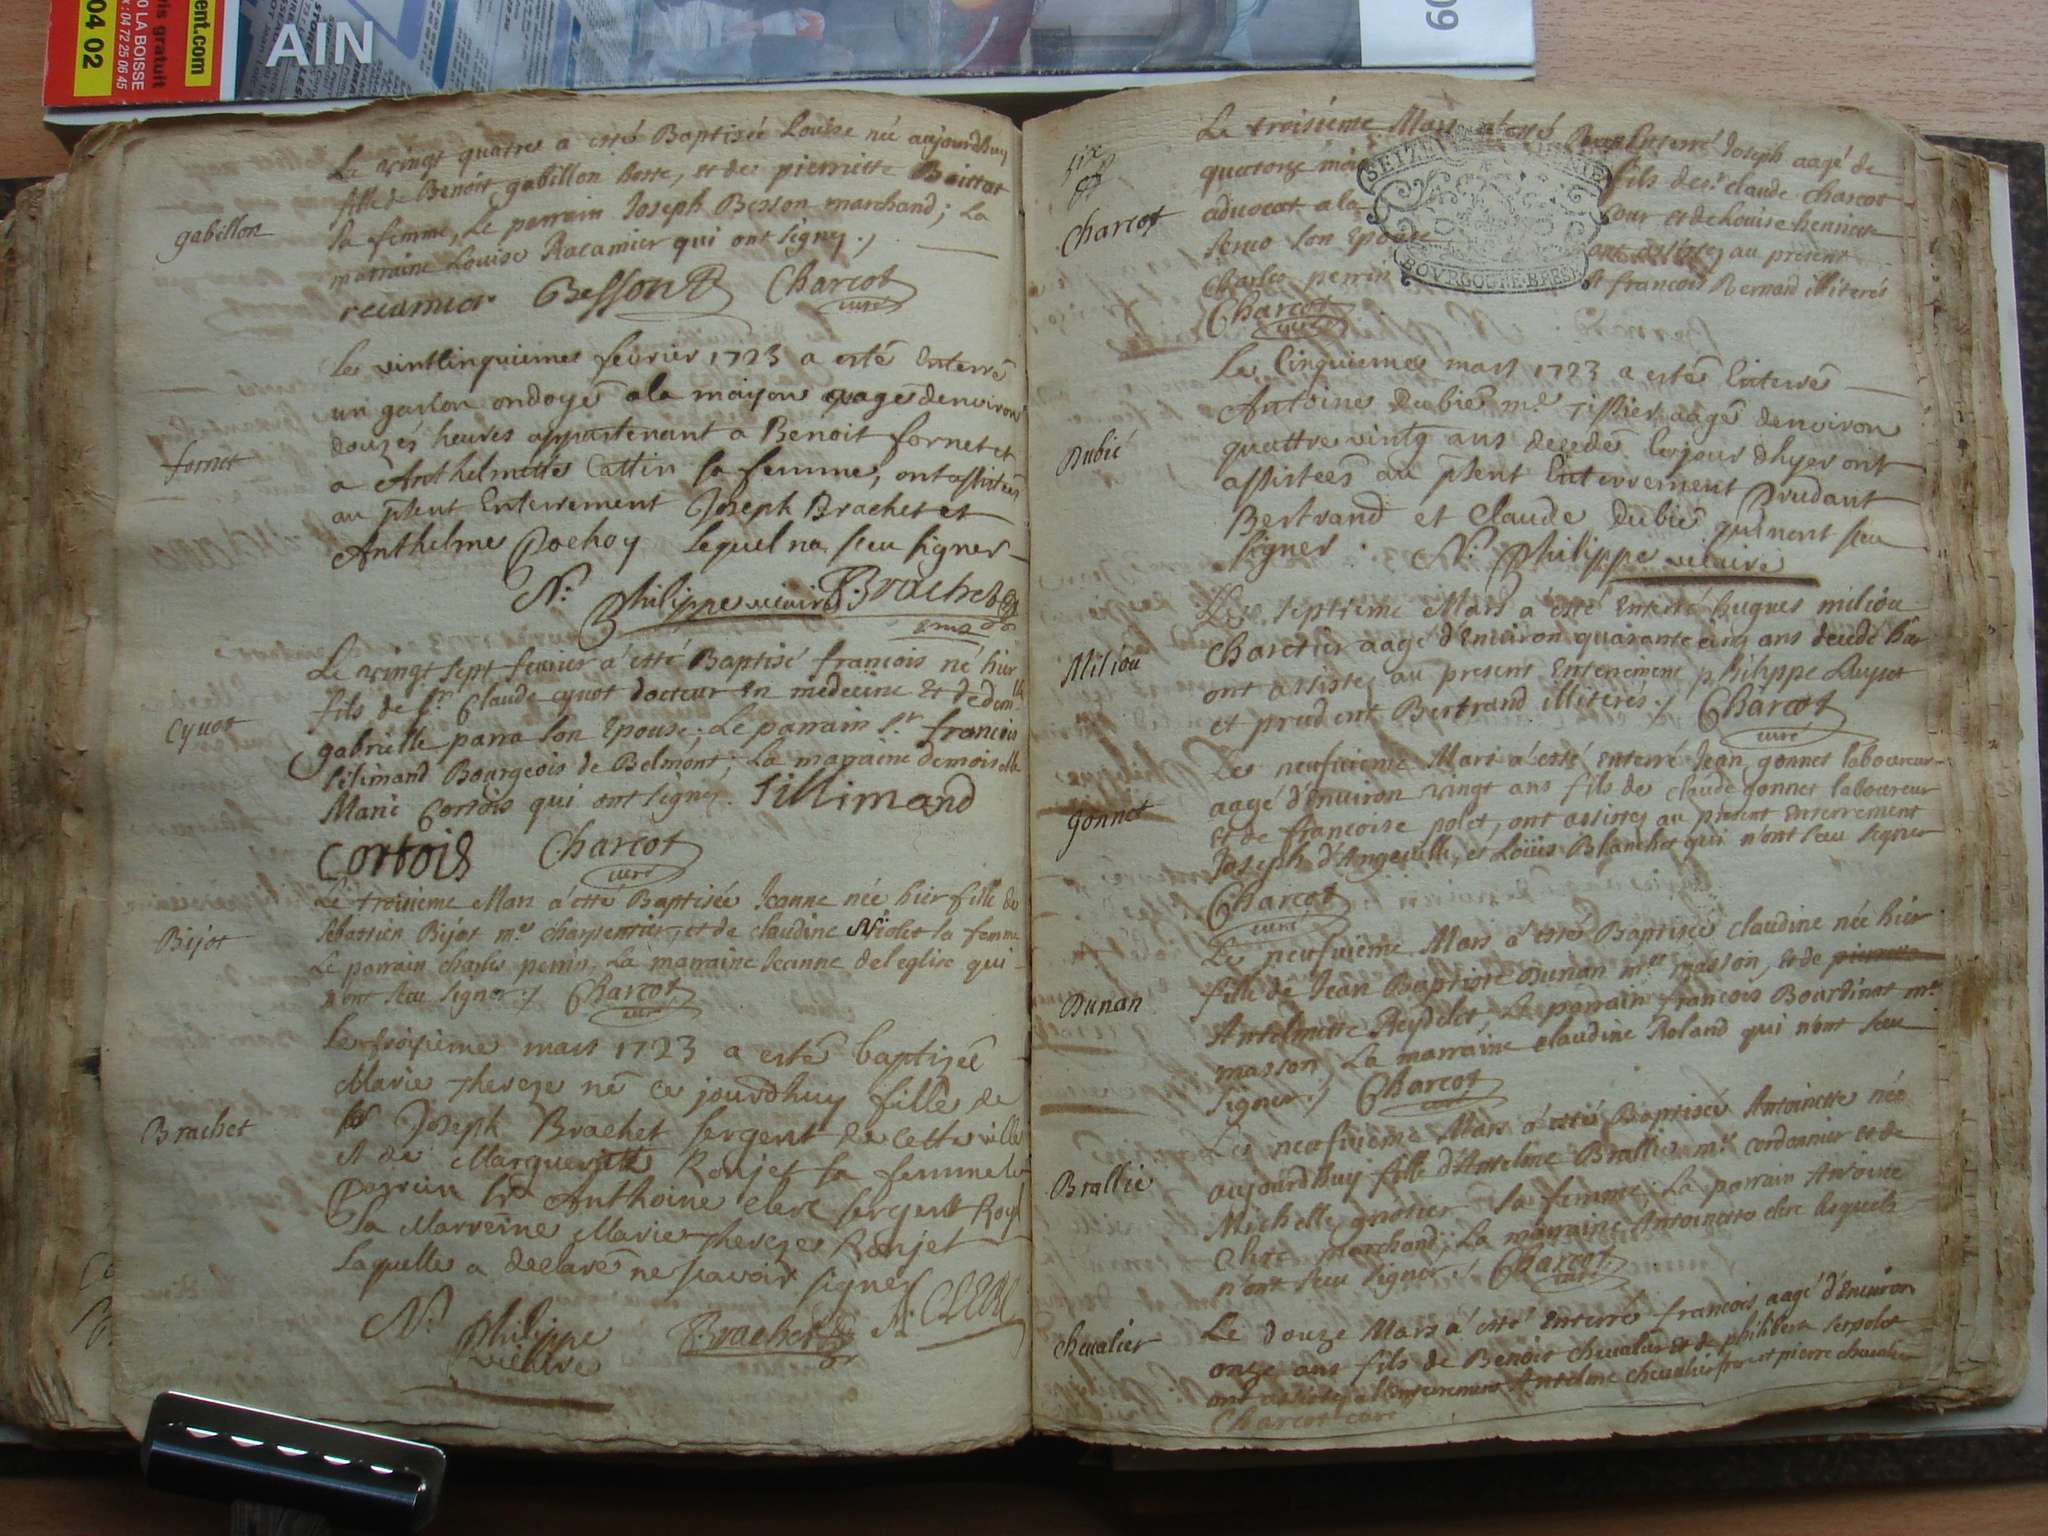 ent.com
is gratuit
04 02
0 LA BOISSE
: 04 72 25 06 45
AIN
09
Le vingt quatre a esté Baptisée Louise née aujourdhuy
fille de Benoit gabillon hoste, et de pierrette
gabillon
sa femme, Le parrain Joseph Besson marchand; La
marraine Louise Racamier qui ont signey ./
recamier Besson Charcot
curé
Le vintcinquieme fevrier 1723 a esté Enterré
un garson ondoyé a la maison aagé denviron
douzes heures appartenant a Benoit fornet et
fornet
a Anthelmette Cattin sa femme, ont assistées
au pñent Enterrement Joseph Brachet et
Anthelme Pochoy lequel na sceu signer
N. Philippe vicaire Brachet
Le vingt sept fevrier a esté Baptisé françois né hier
fils de Sr Claude cyuot docteur en medecine et de demlle
Cyuot
gabrielle parra son Epouse; Le parrain Sr françois
silimand Bourgeois de Belmont; La maraine demoiselle
Marie Cortois qui ont signey. Sillimand
Cortois Charcot
curé
Le troisieme Mars a esté Baptisée Jeanne née hier fille de
Bijot
Sebastien Bijot me charpentier, et de claudine Niolet sa femme
Le parrain charles perrin, La marraine Jeanne deleglise qui
n'ont sceu signer ./ Charcot
curé
Le troisieme mars 1723 a esté baptizée
Marie Thereze né ce jourdhuy fille de
Brachet
Joseph Brachet sergent de cette ville
et de Marguerite Ronjet sa femme le
Parrain Sr Anthoine clerc sergent Royl
la Marreine Marie Thereze Ronjet
laquelle a declaré ne scavoir signer
N. Philippe Brachet A. CLERC
vicaire
Le troisiéme Mars a esté Enterré Joseph aagé de
six d
quatorze mois fils de Sr claude Charcot
Charcot
advocat a la Cour et de Louise
son Epouse ont assistey au present
Charles perrin et francois Bernard illiterés
Charcot
curé
SEIZE
BOURGOGNE-BRESSE
Le Cinquieme mars 1723 a esté Enterré
Antoine Dubié me Tissier aagé denviron
Dubié
quattre vintg ans decedé le jour dhyer ont
assistees au pñent Enterrement Prudant
Bertrand et Claude Dubié qui nont sceu
signer. N. Philippe vicaire
Le septiéme Mars a esté Enterré hugues miliou
Miliou
Charetier aagé d'Environ quarante cinq ans decedé hier
ont assistey au present Enterrement philippe
et prudent Bertrand illiterés ./ Charcot
curé
Le neufuieme Mars a esté Enterré Jean gonnet laboureur
gonnet
aagé d'Environ vingt ans fils de claude gonnet laboureur
et de françoise polet, ont assistey au present Enterrement
Joseph d'Angeville, et Loüis Blanchet qui n'ont sceu signer
Charcot
curé
Le neufuiéme Mars a esté Baptisée claudine née hier
Dunan
fille de Jean Baptiste Dunan me masson, et de
Antelmette Reydelet Le parrain françois Bourdinat me
masson, La marraine claudine Roland qui n'ont sceu
signer ./ Charcot
curé
Le neufuiéme Mars a esté Baptisée Antoinette née
Brallie
aujourdhuy fille d'Antelme Brallie me cordonnier et de
Michelle sa femme, Le parrain Antoine
Clerc marchand; La marraine Antoinette clerc lesquels
n'ont sceu signer ./ Charcot
curé
Chevalier
Le douze Mars a esté Enterré francois aagé d'Environ
onze ans fils de Benoit chevalier et de philiberte serpolet
ont assistey a l'Enterrement Antelme chevalier frere et pierre chevalier
Charcot curé